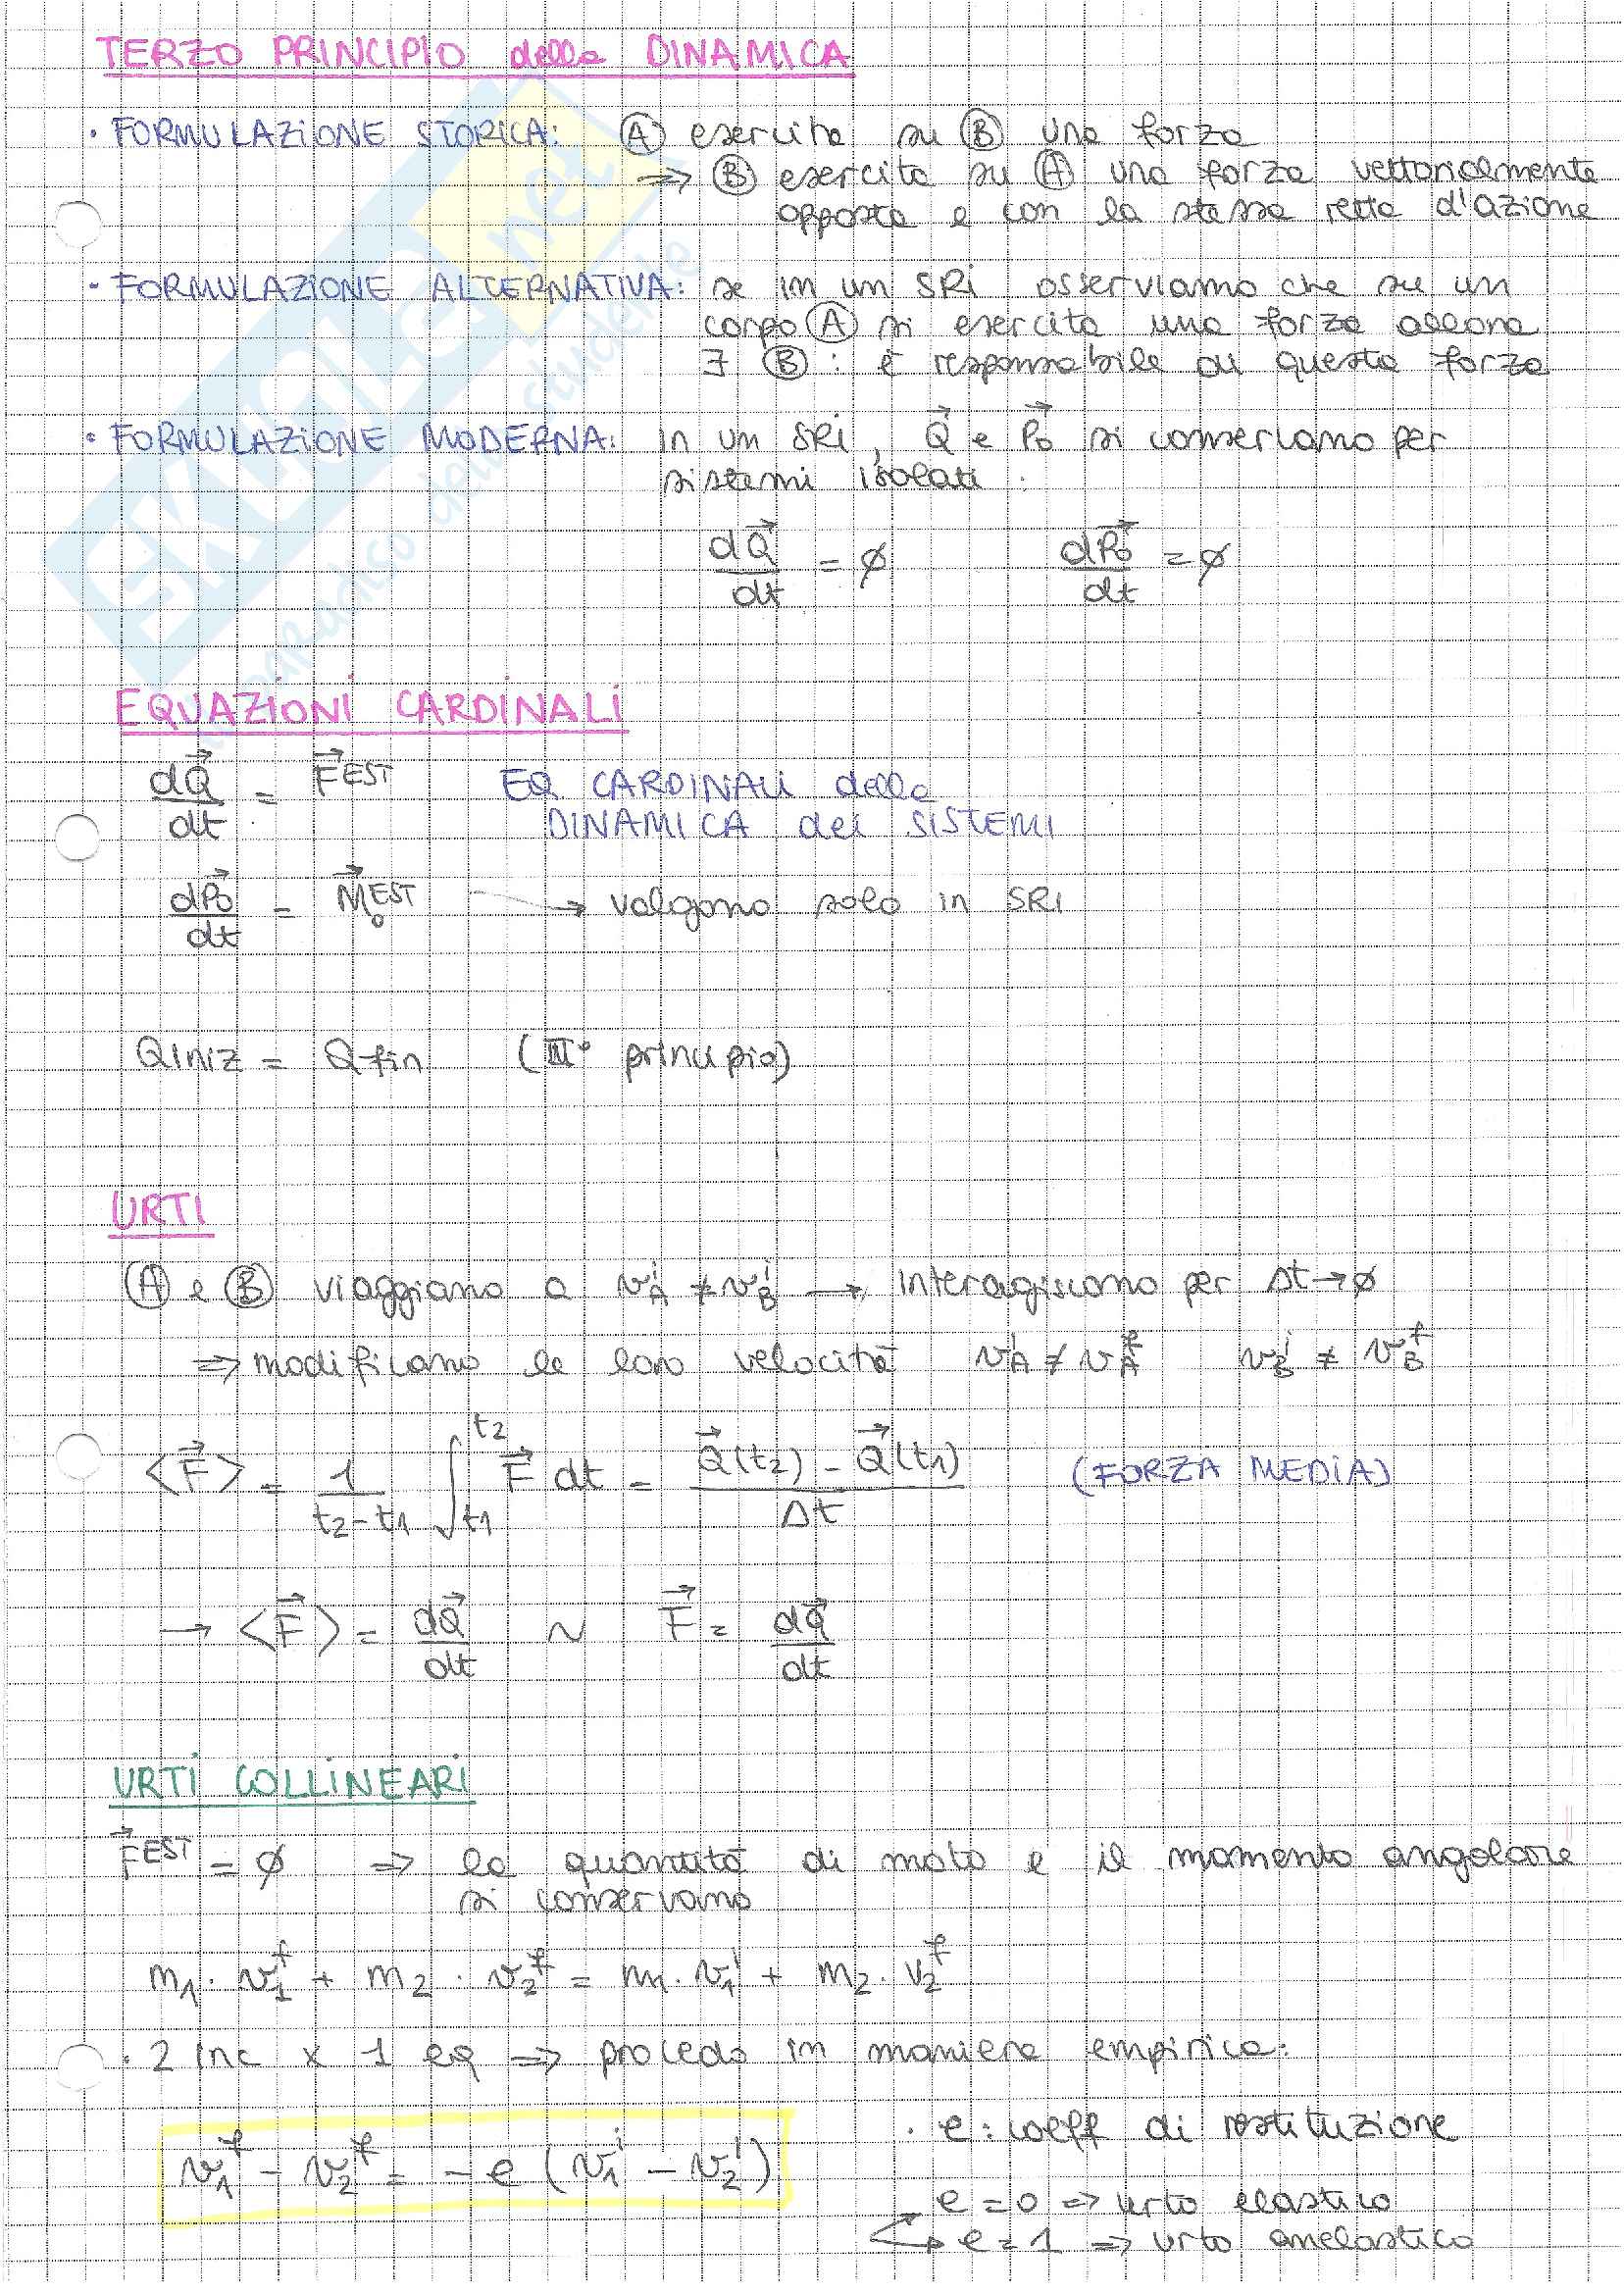 TERZO PRINCIPIO della DINAMICA
• FORMULAZIONE STORICA: Ⓐ esercita su Ⓑ una forza
⇒ Ⓑ esercita su Ⓐ una forza vettorialmente
opposta e con la stessa retta d'azione
• FORMULAZIONE ALTERNATIVA: se in un SRI osserviamo che su un
corpo Ⓐ si esercita una forza allora
∃ Ⓑ : è responsabile di questa forza
• FORMULAZIONE MODERNA: in un SRI, Q⃗ e P⃗o si conservano per
sistemi isolati :
dQ⃗/dt = ∅    dP⃗o/dt = ∅
EQUAZIONI CARDINALI
dQ⃗/dt = F⃗^EST    EQ CARDINALI della
DINAMICA dei SISTEMI
dP⃗o/dt = M⃗o^EST → valgono solo in SRI
Qiniz = Qfin (III° principio)
URTI
Ⓐ e Ⓑ viaggiano a v_A^i ≠ v_B^i → interagiscono per Δt→∅
⇒ modificano le loro velocità v_A^i ≠ v_A^f    v_B^i ≠ v_B^f
<F⃗> = 1/(t2-t1) ∫_t1^t2 F⃗ dt = (Q⃗(t2) - Q⃗(t1))/Δt    (FORZA MEDIA)
→ <F⃗> = dQ⃗/dt ~ F⃗ = dQ⃗/dt
URTI COLLINEARI
F⃗^EST = ∅ ⇒ la quantità di moto e il momento angolare
si conservano
m1 · v_1^f + m2 · v_2^f = m1 · v_1^i + m2 · v_2^f
• 2 inc x 1 eq ⇒ procedo in maniera empirica:
v_1^f - v_2^f = - e (v_1^i - v_2^i)
• e: coeff di restituzione
e = 0 ⇒ urto elastico
e = 1 ⇒ urto anelastico